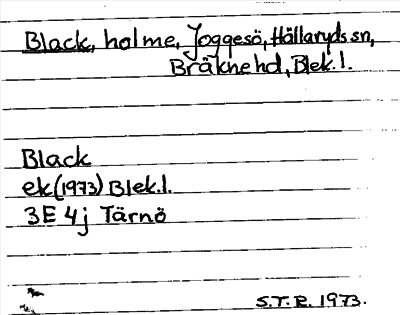 Black, holme, Joggesö, Hällaryds sn,
Bräkne hd, Blek.l.
Black
ek (1973) Blek.l.
3E 4j Tärnö
S.T.R. 1973.